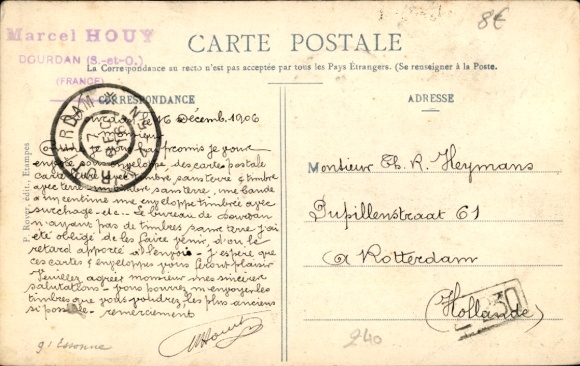 Marcel HOUY
DOURDAN (S.-et-O.)
(FRANCE)
8€
CARTE POSTALE
La Correspondance au recto n'est pas acceptée par tous les Pays Étrangers. (Se renseigner à la Poste.
CORRESPONDANCE
ADRESSE
16 Décemb. 1906
promis je vous
envoie sous enveloppe des cartes postale
carte timbre sans terre & timbre
avec terre sans terre, une bande
à un centime une enveloppe timbrée avec
surchage - de - Le bureau de Dourdan
n'ayant pas de timbres sans terre j'ai
été obligé de les faire venir, d'ou le
retard apporté à l'envoie - J'espère que
ces cartes & enveloppes vous feront plaisir
Veuillez agréer monsieur mes sincères
salutations - vous pouvez m'envoyer les
timbres que vous voudrez, les plus anciens
si possible - remerciement
MHouy
Monsieur Ch. R. Heymans
Pupillenstraat 61
à Rotterdam
(Hollande)
P. Royer, édit., Etampes
91 Essonne
240